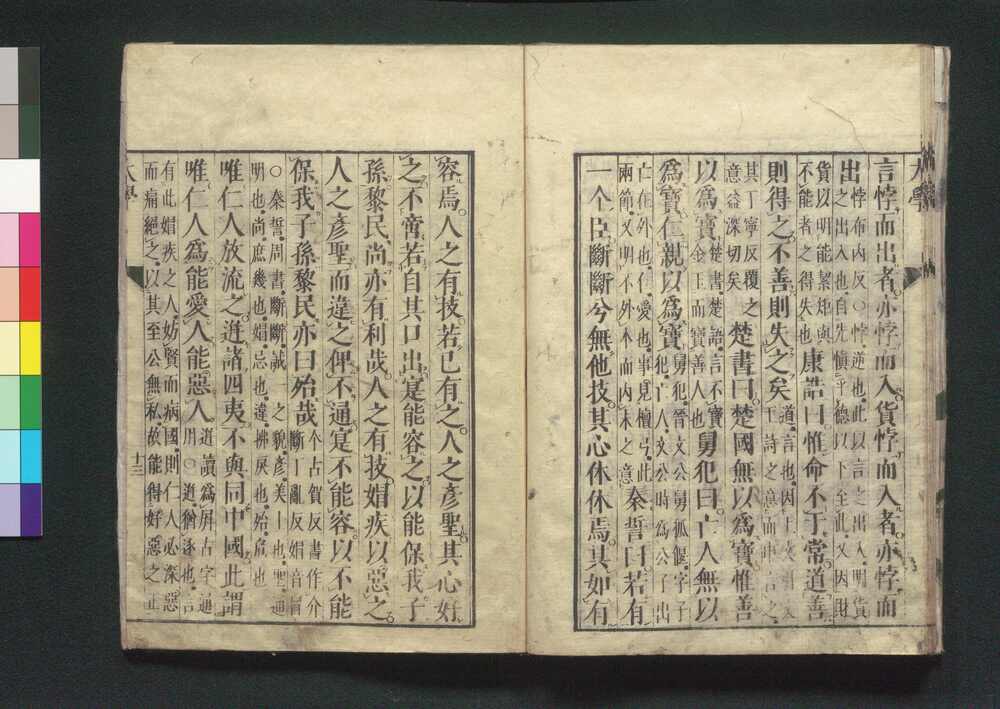 大學
言悖而出者亦悖而入貨悖而入者亦悖而
出悖布内反○悖逆也此以言之出入明貨
之出入也自先慎乎德以下至此又因財
貨以明能絜矩與
不能者之得失也康誥曰惟命不于常道善
則得之不善則失之矣道言也因上文引文
王詩之意而申言之
其丁寧反覆之
意益深切矣楚書曰楚國無以爲寶惟善
以爲寶楚書楚語言不寶
金玉而寶善人也舅犯曰亡人無以
爲寶仁親以爲寶舅犯晉文公舅狐偃字子
犯亡人文公時爲公子出
亡在外也仁愛也事見檀弓此
兩節又明不外本而内末之意秦誓曰若有
一个臣斷斷兮無他技其心休休焉其如有
容焉人之有技若己有之人之彥聖其心好
之不啻若自其口出寔能容之以能保我子
孫黎民尚亦有利哉人之有技媢疾以惡之
人之彥聖而違之俾不通寔不能容以不能
保我子孫黎民亦曰殆哉个古賀反書作介
斷丁亂反媢音冒
○秦誓周書斷斷誠一之貌彥美士也聖通
明也尚庶幾也媢忌也違拂戾也殆危也
唯仁人放流之迸諸四夷不與同中國此謂
唯仁人爲能愛人能惡人迸讀爲屏古字通
用○迸猶逐也言
有此媢疾之人妨賢而病國則仁人必深惡
而痛絕之以其至公無私故能得好惡之正
大學
十三